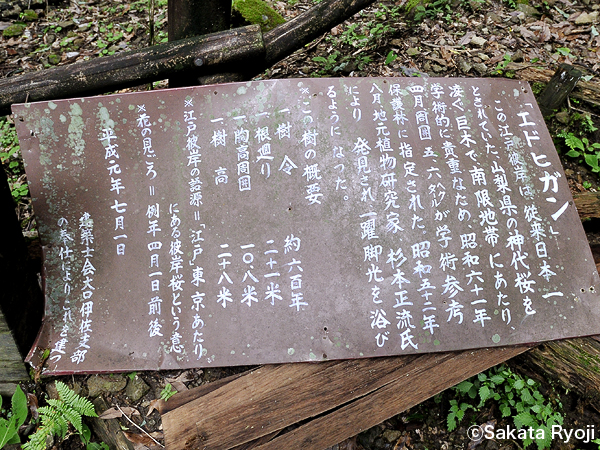 「エドヒガン」
この江戸彼岸は、従来日本一
とされていた、山梨県の神代桜を、
凌ぐ巨木で、南限地帯にあたり、
学術的に貴重なため、昭和六十一年
四月周囲五、六八ヘクタールが学術参考
保護林に指定された。昭和五十二年
八月地元植物研究家、杉本正流氏
により、発見され一躍脚光を浴び
るようになった。
※この樹の概要
一樹令 約六百年
一根廻り 二十一米
一胸高周囲 一〇・八米
一樹高 二十八米
※江戸彼岸の語源＝「江戸」東京あたり
にある彼岸桜という意
※花の見ごろ＝例年四月一日前後
平成元年七月一日
建築士会大口伊佐支部
の奉仕によりこれを建つ
©Sakata Ryoji